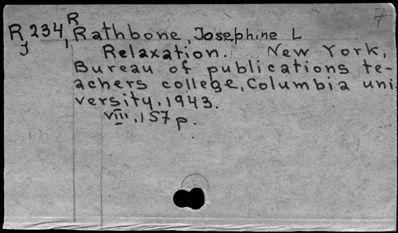 R 7
R 234 Rathbone, Josephine L
J Relaxation. New York,
Bureau of publications te-
achers college, Columbia uni
versity, 1943.
viii, 157 p.